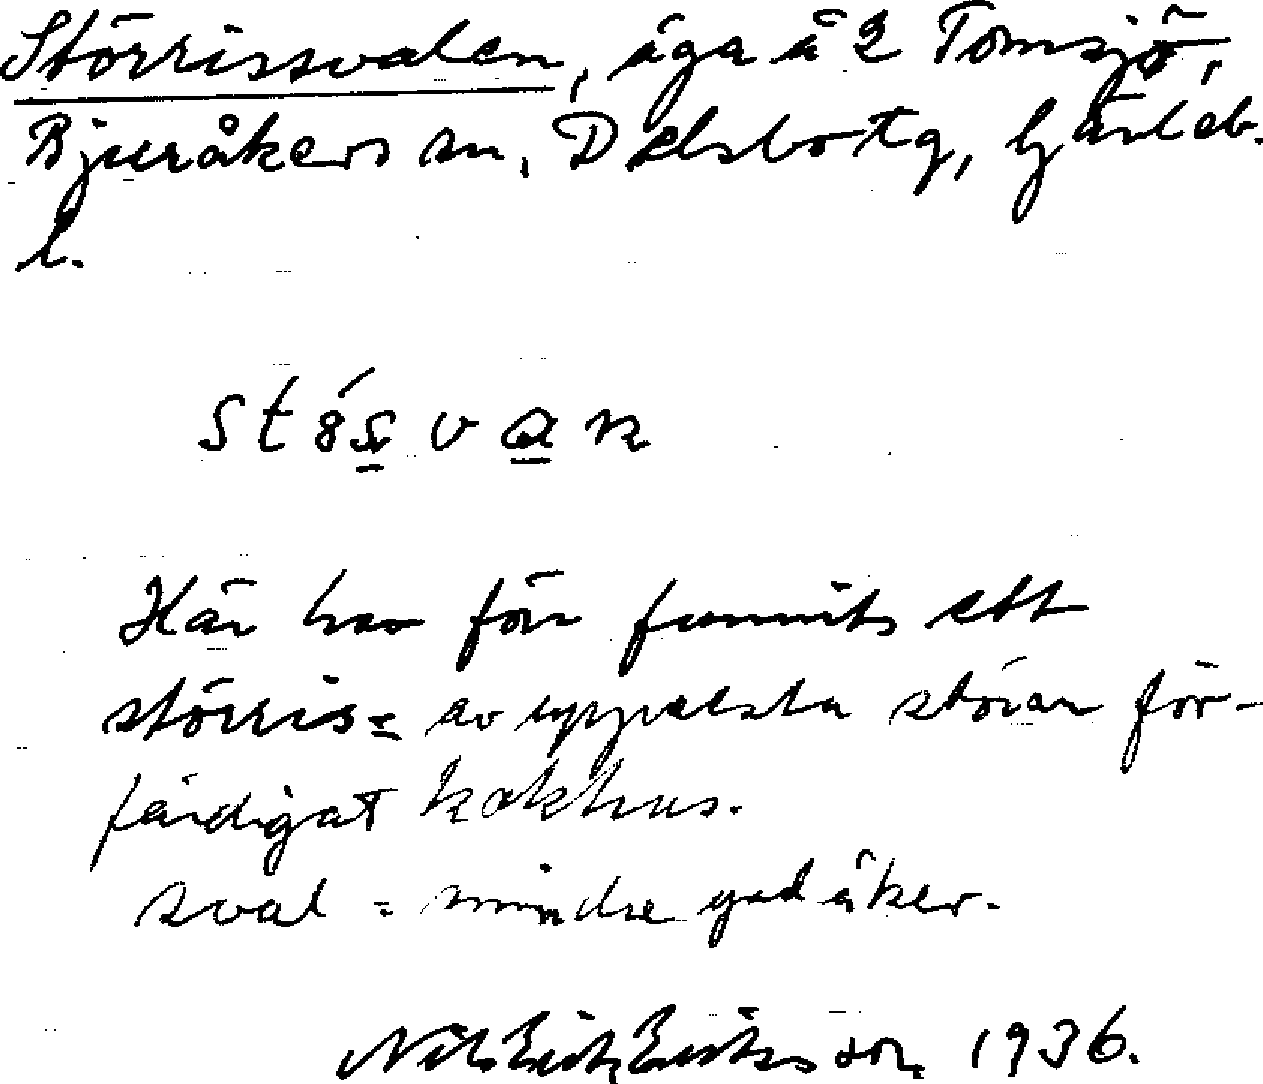 Störrissvalen, äga å 2 Tomsjö,
Bjuråkers sn, Delsbo tg, Gävleb.
l.
Här har förr funnits ett
störris= av uppresta störar för-
färdigat kokhus.
sval = mindre god åker.
Nils Erik Eriksson 1936.